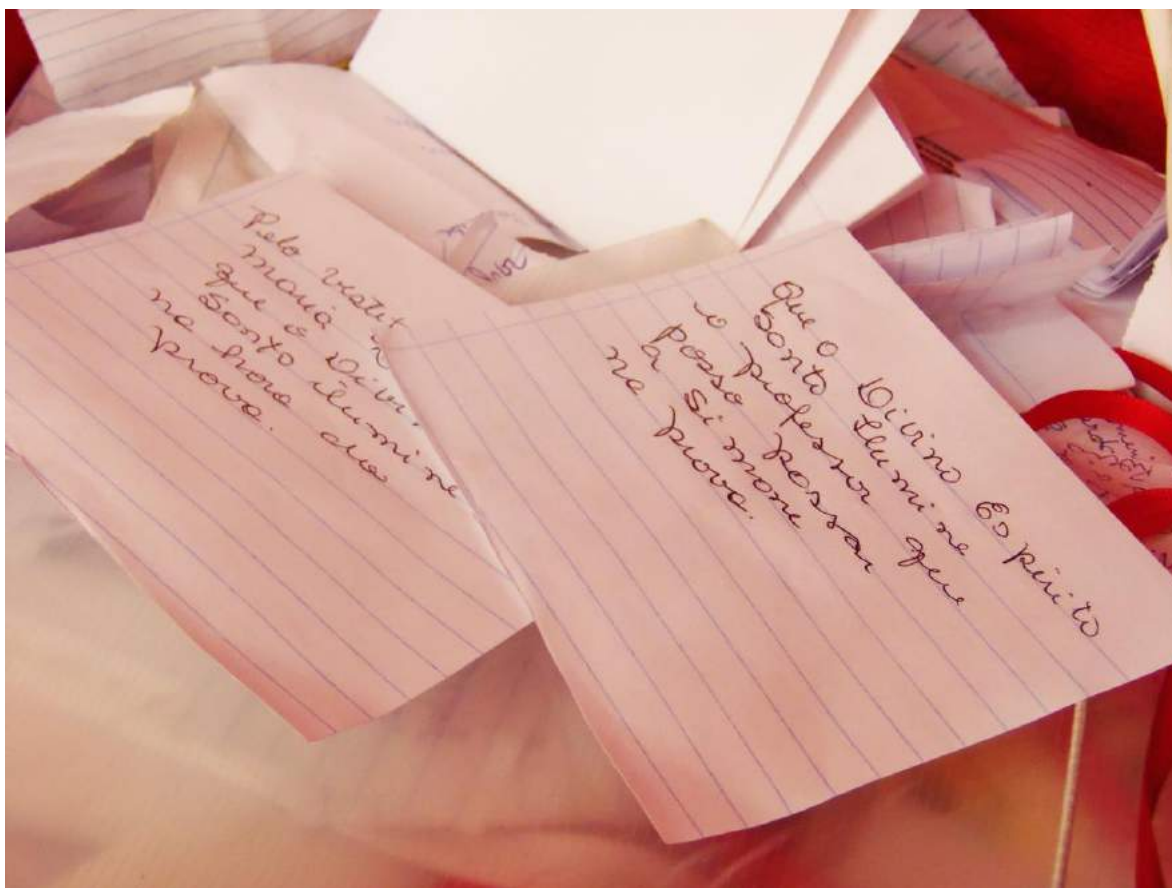 Pelo vestib
maria
que o Divi
Santo ilumine
na hora da
prova.
Que o Divino Espirito
Santo Ilumine
o professor que
possa passar
a Simone
na prova.